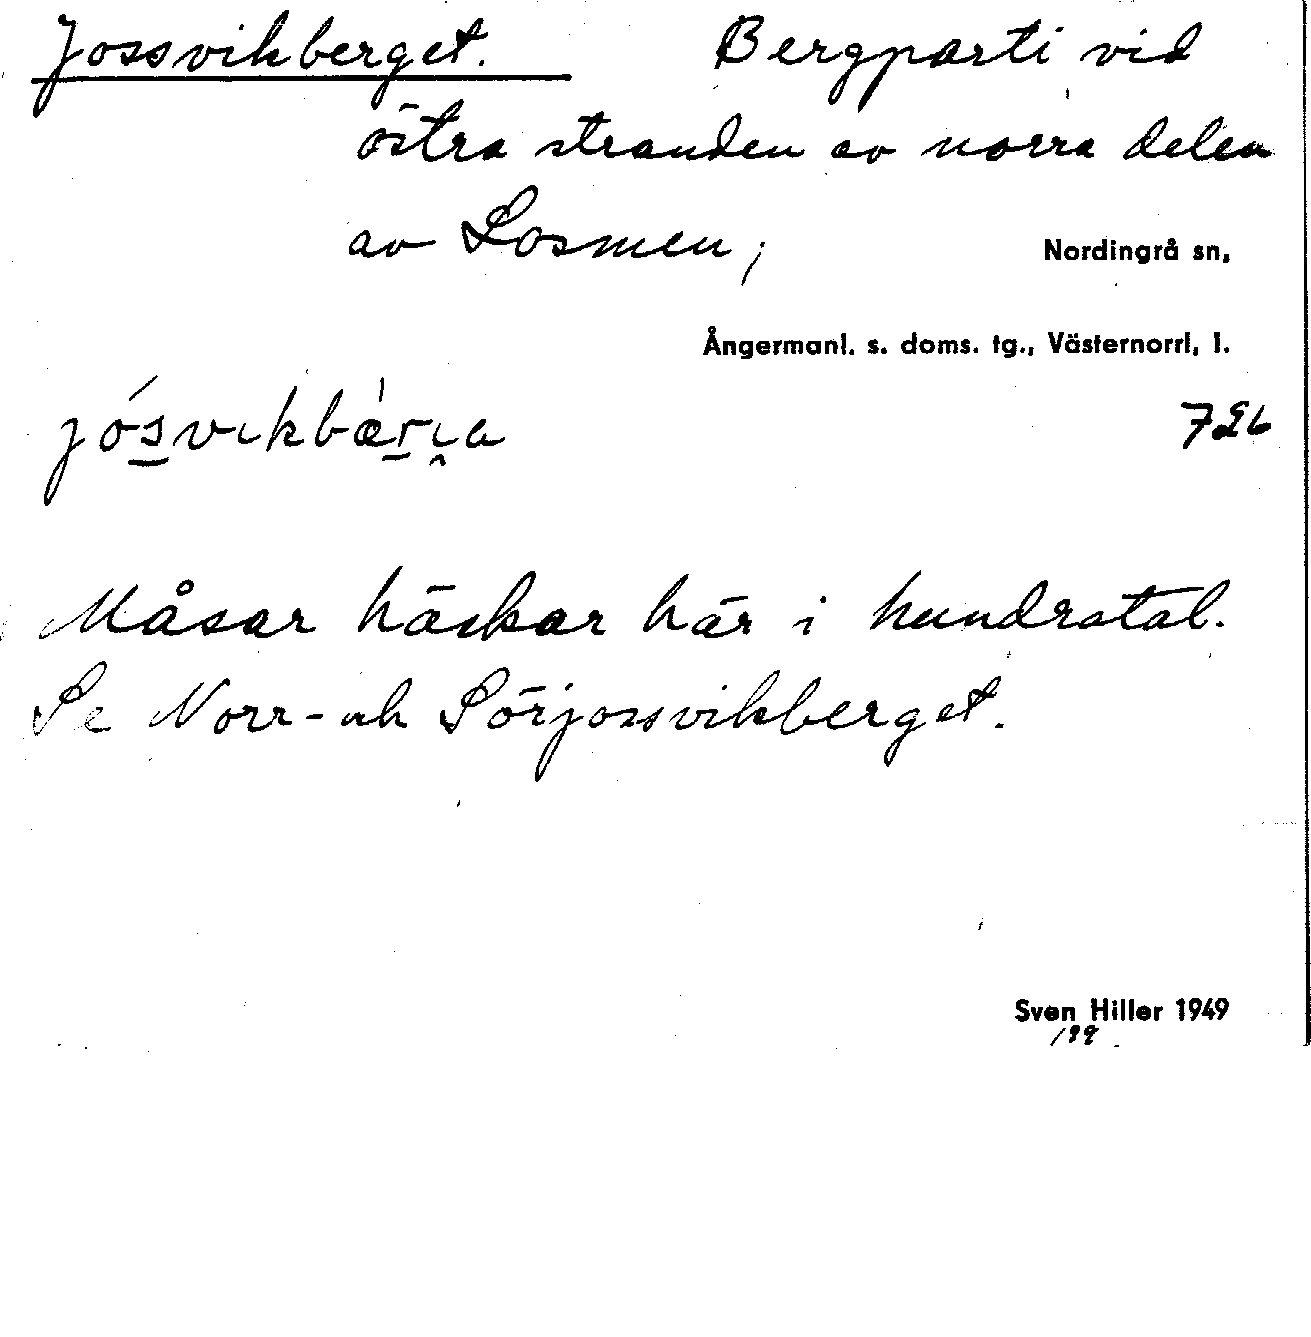 Jossvikberget. Bergparti vid
östra stranden av norra delen
av Losmen;
Nordingrå sn,
Ångermanl. s. doms. tg., Västernorrl, l.
jósvikbæ̀ri̯a
Måsar häckar här i hundratal.
Se Norr- och Sörjossvikberget.
Sven Hiller 1949